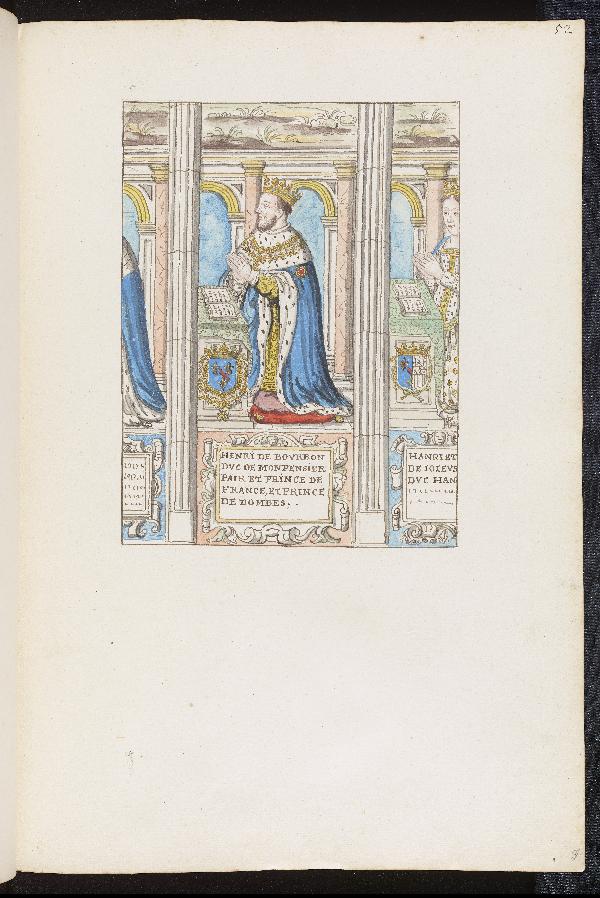 52
HENRI DE BOVRBON
DVC DE MONPENSIER
PAIR ET PRINCE DE
FRANCE, ET PRINCE
DE DOMBES..
HANRI ET
DE IOIEVS
DVC HAN